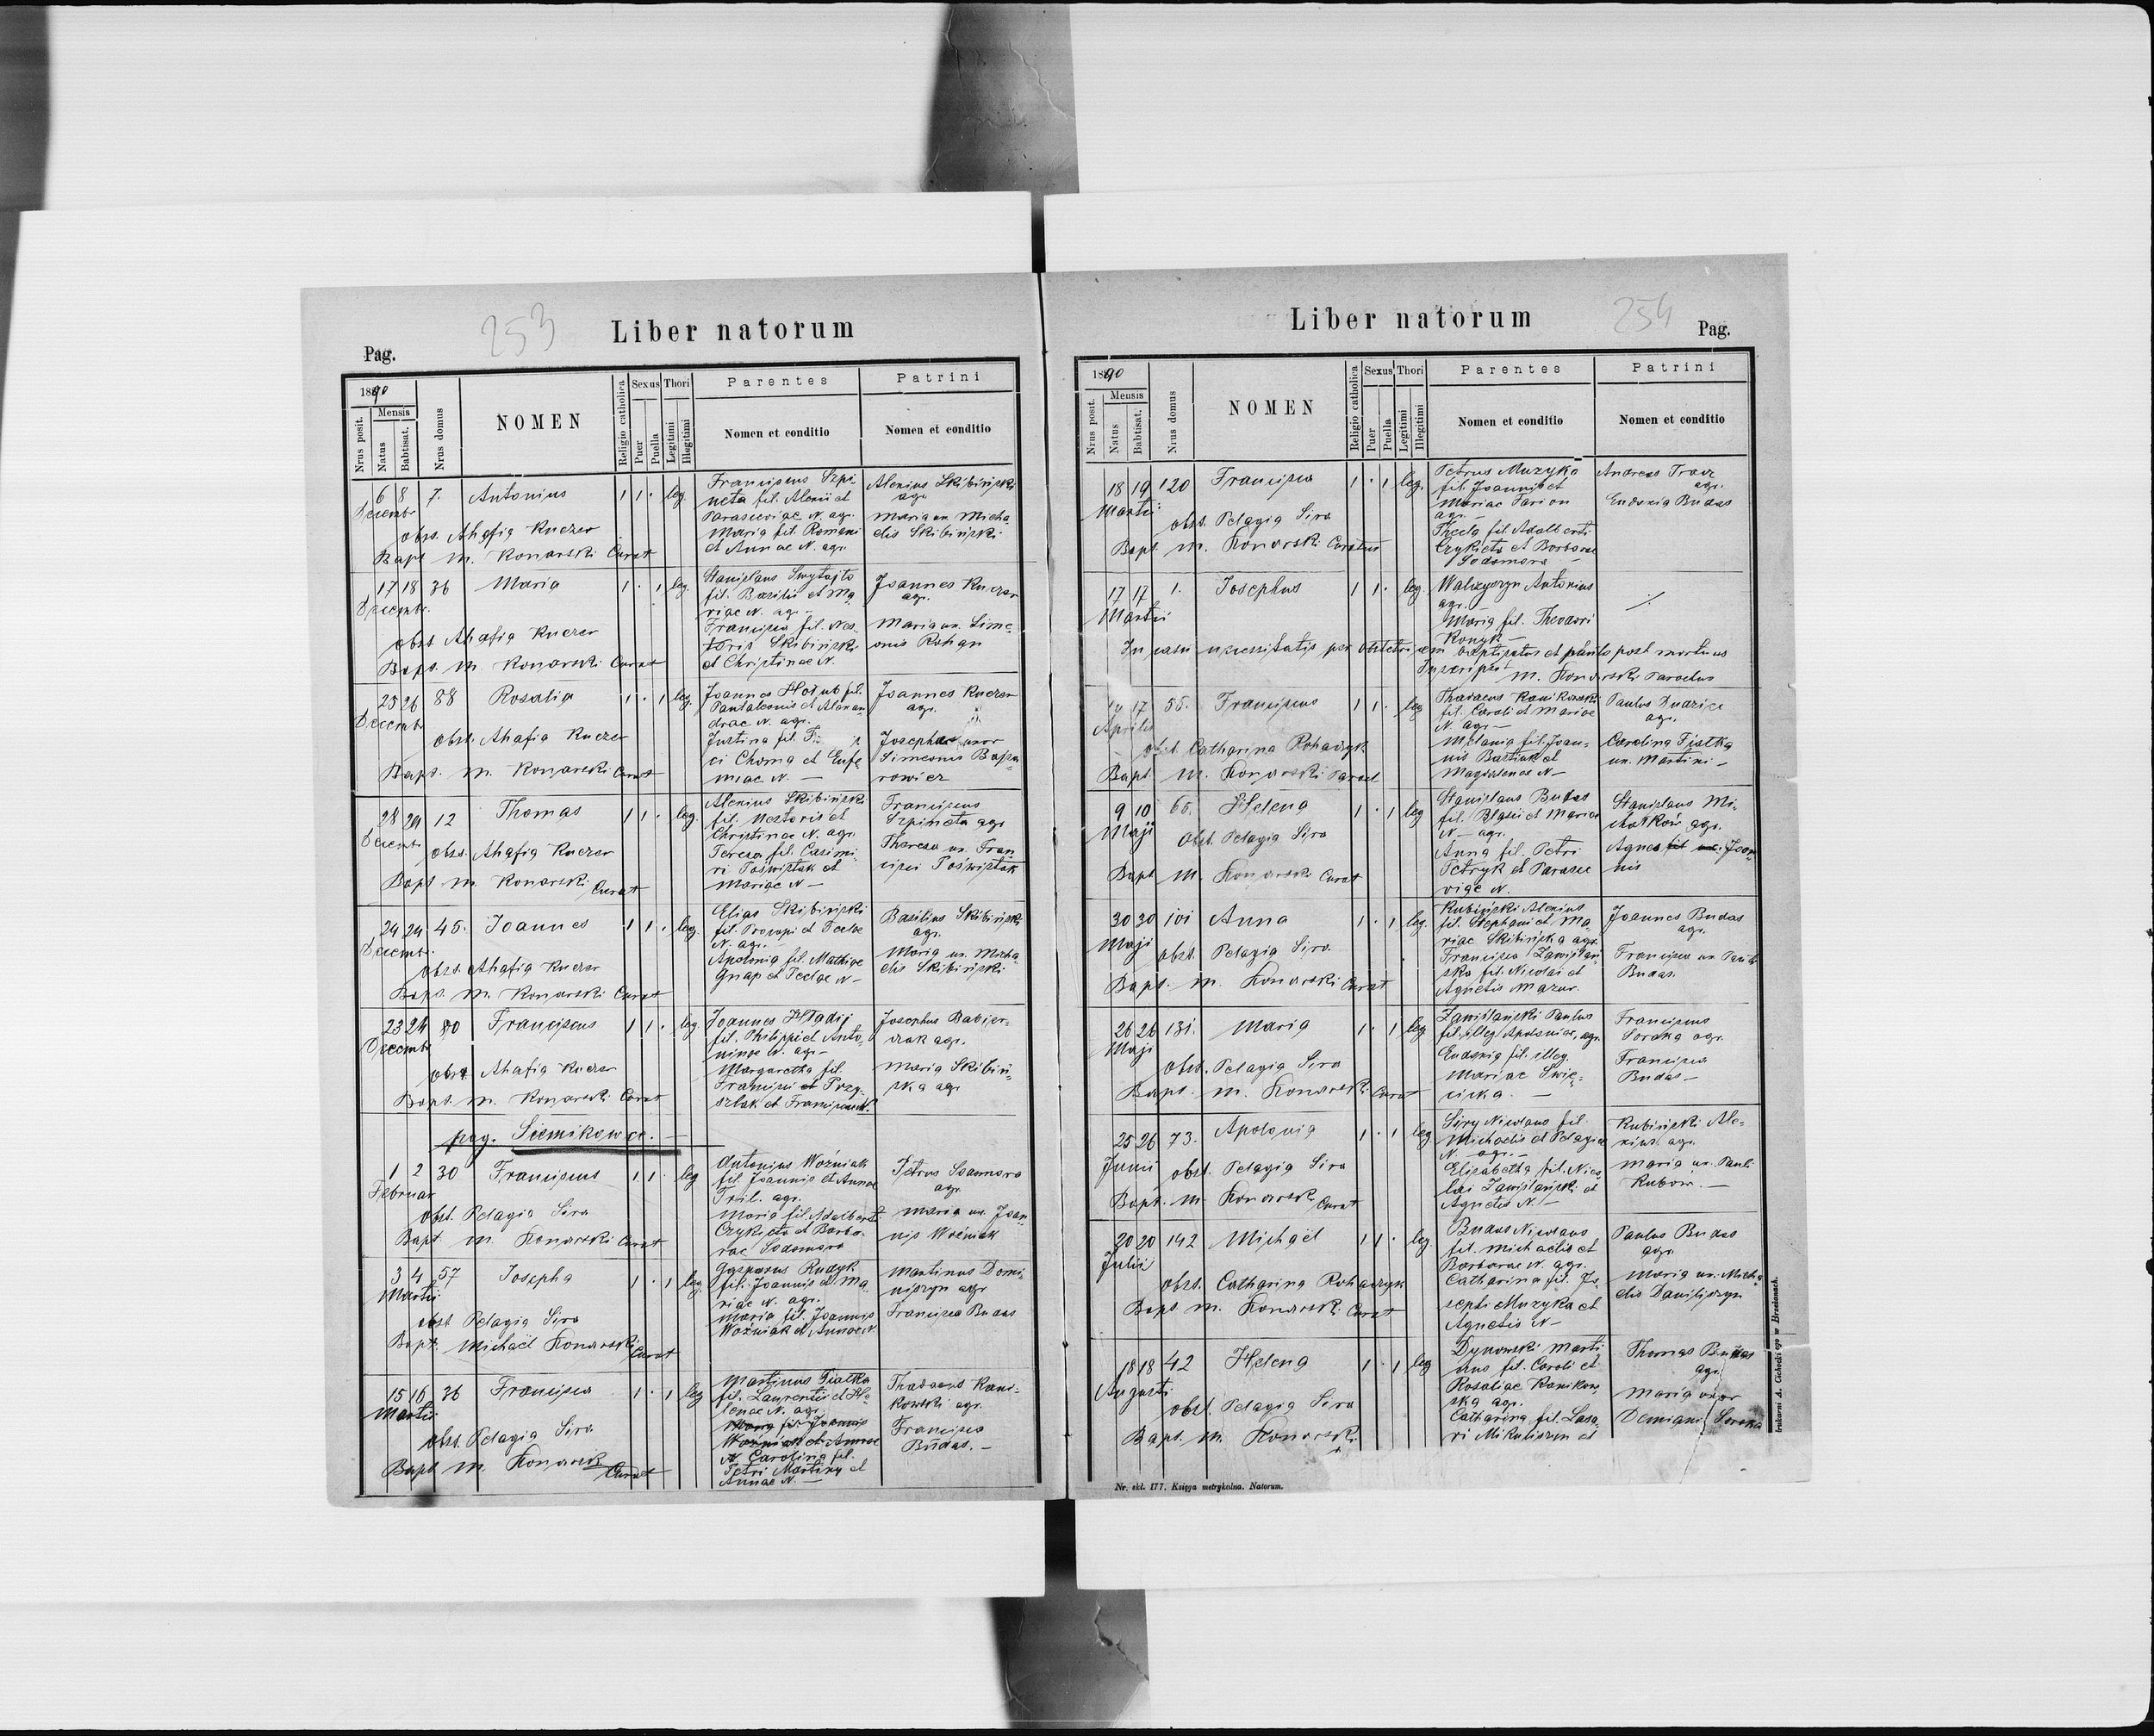 253
Liber natorum
Pag.
1890
Nrus posit.
Mensis
Natus
Babtisat.
Nrus domus
NOMEN
Religio catholica
Sexus
Puer
Puella
Thori
Legitimi
Illegitimi
Parentes
Nomen et conditio
Patrini
Nomen et conditio
6 8 7. Antonius 1 1 · leg.
Decembr
obs. Ahafia Kuczer
Bapt M. Konarski Curat
Franciscus Szpi-
neta fil. Alexii et
Parasceviae N. agr.
Maria fil. Romani
et Annae N. agr.
Alexius Skibiński
agr.
Maria ux. Micha-
elis Skibiński
17 18 36 Maria 1 · 1 leg.
Decembr.
obst Ahafia Kuczer
Bapt. M. Konarski Curat
Stanislaus
fil. Basilii et Ma-
riae N. agr.
Francisca fil. Nes-
toris Skibiński
et Christinae N.
Joannes Kuczer
agr.
Maria ux. Sime-
onis Rohan
25 26 88 Rosalia 1 · 1 leg.
Decembr
obst. Ahafia Kuczer
Bapt. M. Konarski Curat
Joannes Hołub fil.
Pantaleonis et Alexan-
drae N. agr.
Justina fil.
ci Choma et Eufe-
miae N. —
Joannes Kuczer
agr.
Josepha uxor
Simeonis
rowicz
28 29 12 Thomas 1 1 · leg.
Decembr
obst. Ahafia Kuczer
Bapt M. Konarski Curat
Alexius Skibiński
fil. Nestoris et
Christinae N. agr.
Teresa fil. Casimi-
ri Poświstak et
Mariae N —
Franciscus
Szpineta agr
Theresa ux. Fran-
cisci Poświstak
24 24 45. Joannes 1 1 · leg.
Decembr.
obst. Ahafia Kuczer
Bapt. M. Konarski Curat
Elias Skibiński
fil. Procopi et Teclae
N. agr. —
Apolonia fil. Mathiae
Gnap et Teclae N —
Basilius Skibiński
agr.
Maria ux. Micha-
elis Skibiński
23 24 80 Franciscus 1 1 · leg.
Decembr
obst Ahafia Kuczer
Bapt. M. Konarski Curat
Joannes Hładij
fil. Philippi et Anto-
ninae N. agr —
Margaretha fil.
Francisci et Przy-
szlak et Franciscae N.
Josephus Babijar-
czak agr.
Maria Skibiń-
ska agr
pag. Siemikowce. —
1 2 30 Franciscus 1 1 · leg
Februar
obst. Pelagia Sira
Bapt M. Konarski Curat
Antonius Woźniak
fil. Joannis et Annae
Tril. agr.
Maria fil. Adalberti
Czykieta et Barba-
rae Sodomora
Petrus Sodomora
agr
Maria ux. Joan-
nis Woźniak
3 4 57 Josepha 1 · 1 leg
Martii
obst Pelagia Sira
Bapt. Michaël Konarski Curat
Gasparus Rudyk
fil. Joannis et Ma-
riae N. agr.
Maria fil. Joannis
Woźniak et Annae N
Martinus Domi-
niszyn agr
Francisca Budas
15 16 36 Francisca 1 · 1 leg
Martii
obst. Pelagia Sira
Bapt M. Konarski Curat
Martinus Piatka
fil. Laurentii et He-
lenae N. agr.
Maria fil. Joannis
Woźniak et Annae
N Carolina fil.
Petri Martiny et
Annae N. —
Thadaeus Rani-
kowski agr.
Francisca
Budas. —
Liber natorum
254
Pag.
1890
Nrus posit.
Mensis
Natus
Babtisat.
Nrus domus
NOMEN
Religio catholica
Sexus
Puer
Puella
Thori
Legitimi
Illegitimi
Parentes
Nomen et conditio
Patrini
Nomen et conditio
18 19 120 Francisca 1 · 1 leg.
Martii
obst. Pelagia Sira
Bapt. M. Konarski Curatus
Petrus Muzyka
fil. Joannis et
Mariae Parion
agr. —
Thecla fil Adalberti
Czykieta et Barbarae
Sodomora —
Andreas Tracz
agr.
Eudoxia Budas
17 17 1. Josephus 1 1 · leg.
Martii
Walczyszyn Antonius
agr. —
Maria fil. Theodori
Konyk —
In casu necessitatis per obstetricem baptisatus et paulo post mortuus
Inscripsit M. Konarski Parochus
17 55. Franciscus 1 1 · leg
Aprilis
obst Catharina Rohaczyk
Bapt M. Konarski Paroch
Thadaeus Ranikowski
fil. Caroli et Mariae
N. agr —
Melania fil. Joan-
nis Bartiuk et
Magdalenae N —
Paulus
agr.
Carolina Piatka
ux. Martini —
9 10 65. Helena 1 · 1 leg
Maji
obst. Pelagia Sira
Bapt M. Konarski Curat
Stanislaus Budas
fil. Blasii et Mariae
N — agr.
Anna fil. Petri
Petryk et Parasce-
viae N.
Stanislaus Mi-
chałków agr.
Agnes fil ux. Joan-
nis
30 30 101 Anna 1 · 1 leg.
Maji
obst. Pelagia Sira
Bapt. M. Konarski Curat
Kubiński Alexius
fil. Stephani et Ma-
riae Skibińska agr.
Francisca Zawiślań-
ska fil. Nicolai et
Agnetis Mazur.
Joannes Budas
agr.
Francisca ux Pauli
Budas.
26 26 131. Maria 1 · 1 leg
Maji
obst. Pelagia Sira
Bapt. M. Konarski Curat
Zawiślański Paulus
fil. illeg Apoloniae, agr.
Eudoxia fil. illeg.
Mariae Świę-
cicka. —
Franciscus
Soroka agr.
Francisca
Budas —
25 26 73. Apolonia 1 · 1 leg
Junii
obst. Pelagia Sira
Bapt. M. Konarski Curat
Siry Nicolaus fil.
Michaelis et Pelagiae
N. agr. —
Elisabetha fil. Nico-
lai Zawiślański et
Agnetis N. —
Kubiński Ale-
xius agr.
Maria ux. Pauli
Kubów. —
20 20 142 Michaël 1 1 · leg
Julii
obst. Catharina Rohaczyk
Bapt M. Konarski Curat
Budas Nicolaus
fil. Michaelis et
Barbarae N. agr.
Catharina fil. Jo-
sephi Muzyka et
Agnetis N —
Paulus Budas
agr.
Maria ux. Micha-
elis Daniliszyn
18 18 42 Helena 1 · 1 leg
Augusti
obst. Pelagia Sira
Bapt. M. Konarski
Dynowski Marti-
nus fil. Caroli et
Rosaliae Ranikow-
ska agr.
Catharina fil. Laza-
ri Mikuliszyn et
Thomas Budas
agr.
Maria uxor
Demiani Soroka
Nr. skl. 177. Księga metrykalna. Natorum.
drukarni A. Cichocki ego w Brzeżanach.